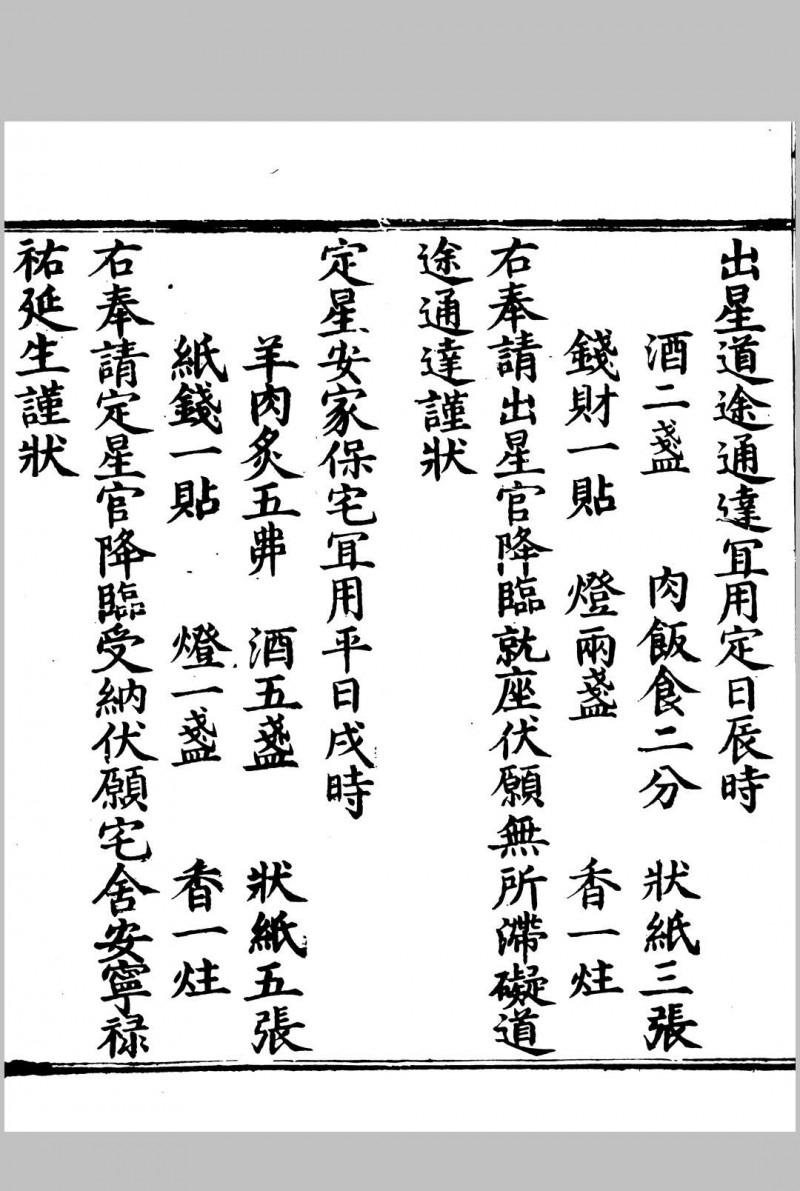 出星道途通達冝用定日辰時
酒二盞　肉飯食二分　狀紙三張
錢財一貼　燈兩盞　香一炷
右奉請出星官降臨就座伏願無所滯礙道
途通達謹狀
定星安家保宅冝用平日戌時
羊肉炙五弗　酒五盞　狀紙五張
紙錢一貼　燈一盞　香一炷
右奉請定星官降臨受納伏願宅舍安寧禄
祐延生謹狀